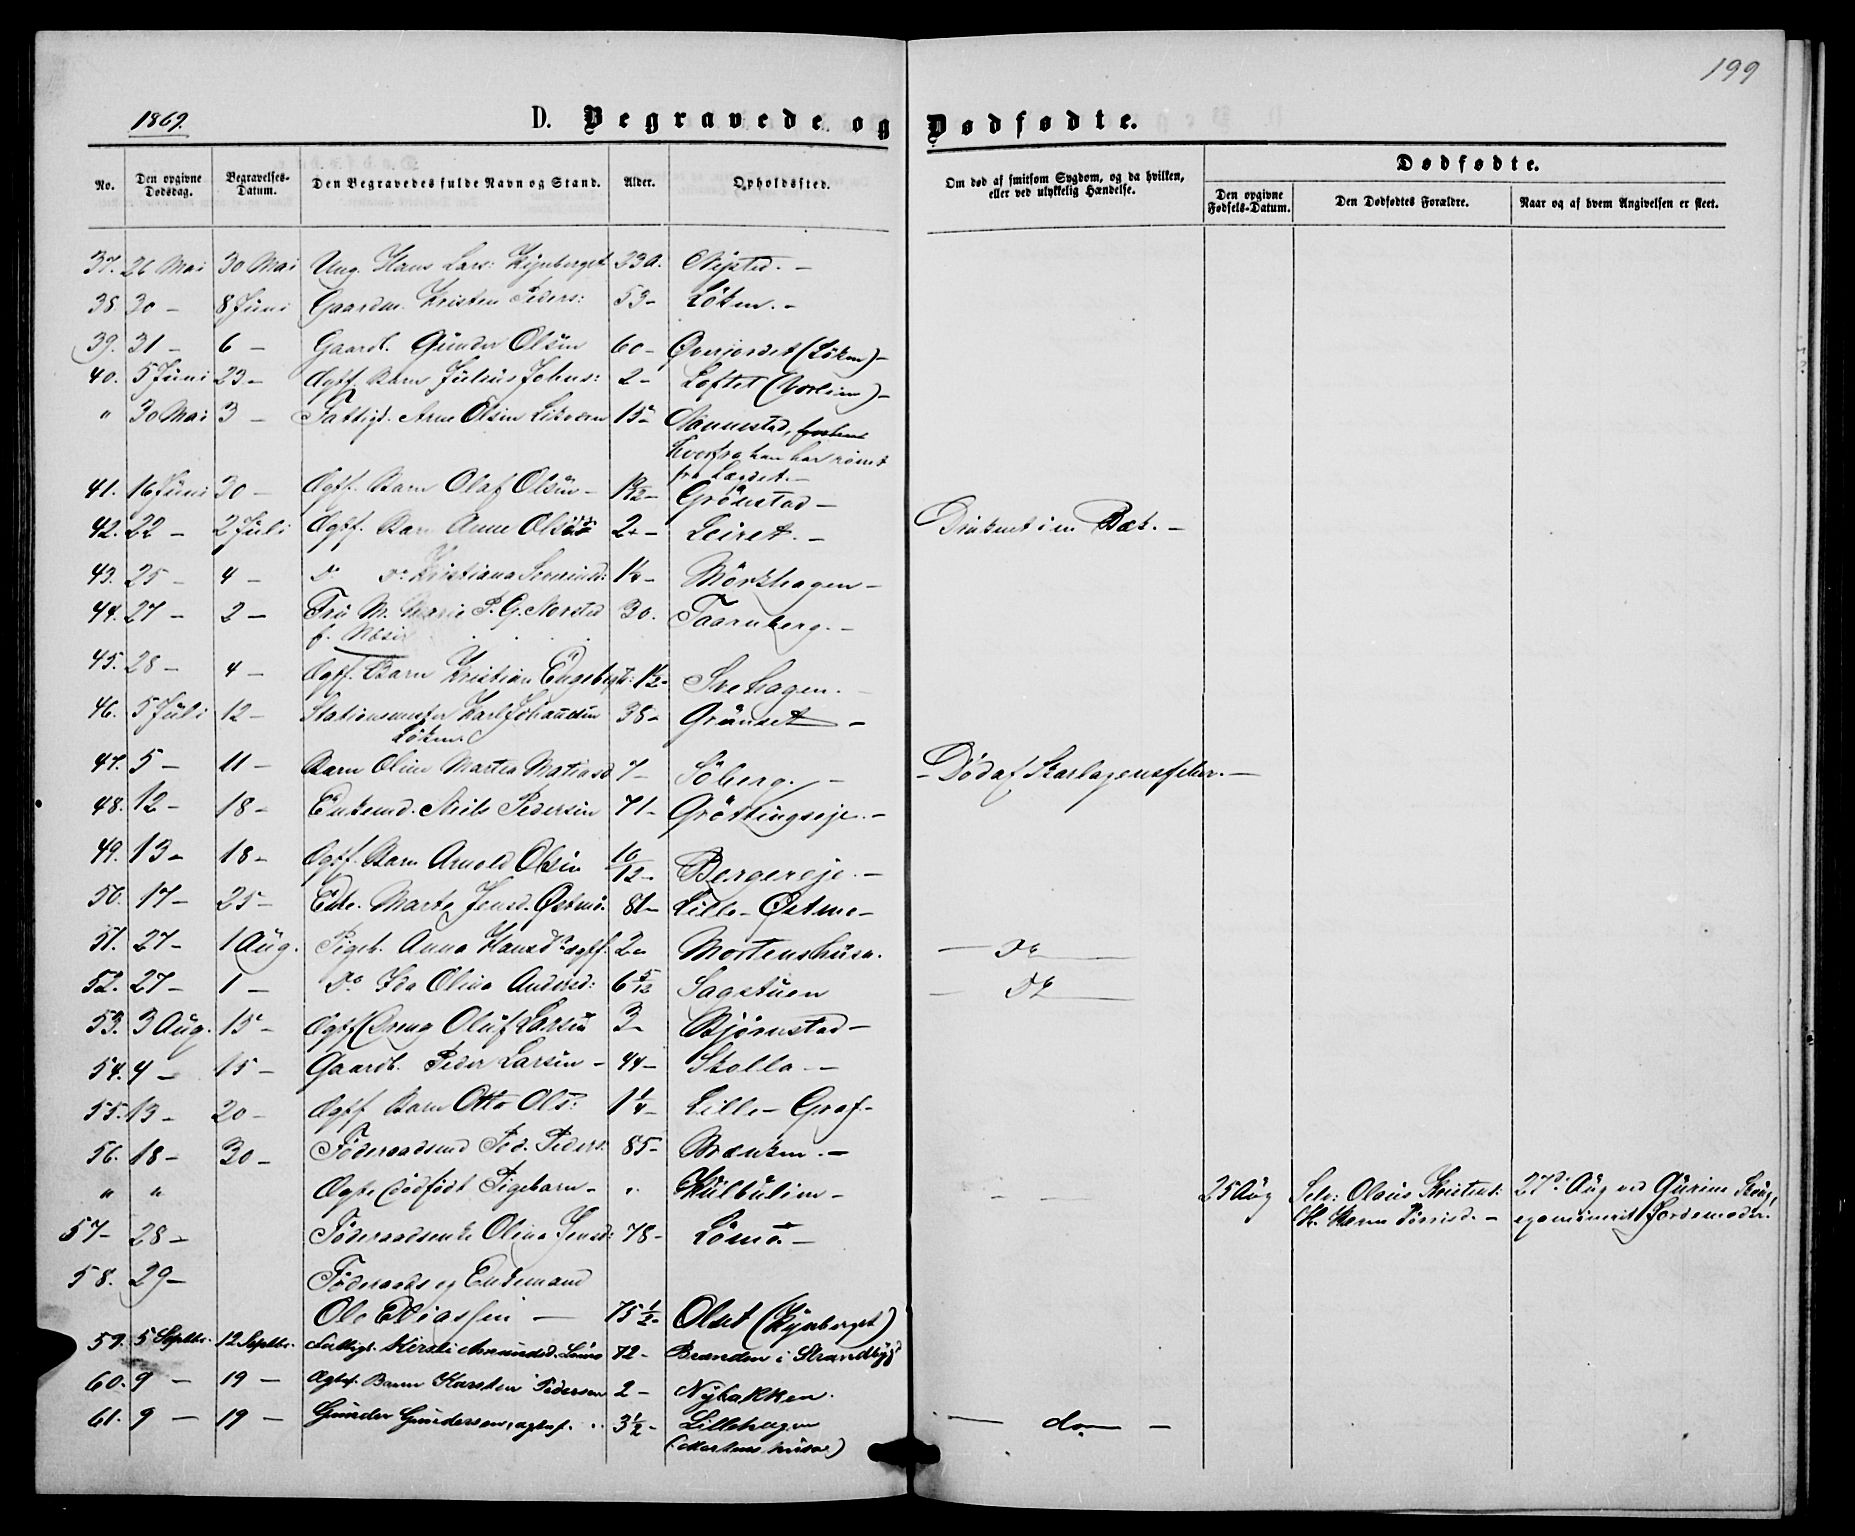 199
1869.
D. Begravede og Dødfødte.
No.
Den opgivne Dødsdag.
Begravelses-Datum.
Den Begravedes fulde Navn og Stand.
Alder.
Opholdssted.
Om død af smitsom Sygdom, og da hvilken, eller ved ulykkelig Hændelse.
Dødfødte.
Den opgivne Fødsels-Datum.
Den Dødfødtes Forældre.
Naar og af hvem Angivelsen er skeet.
37. 26 Mai 30 Mai Ung. Hans Lars: Kynberget 23 a.
38 30 - 8 Juni Gaardm. Kristen Peders: 53 - Løken. -
39. 31 - 6 - Gaardb. Gunder Olsen 60 - Øverjordet (Løken) -
40. 5 Juni 23 - Ægtf. Barn Julius Johns: 2 - Loftet
" 30 Mai 3 - Fattigl. Arne Olsen 15 -
hvorfra han har rømt
fra Lægdet. -
41. 16 Juni 30 - Ægtf. Barn Olaf Olsen - Grönstad -
42. 22 - 2 Juli Ægtf. Barn Anne 2 - Leiret. - Druknet i en Bæk. -
43. 25 - 4 - Do Do Kristiana Mörkhagen -
44. 27 - 2 - Fru M. Marie P. G. Norsted 30. Taarnberg. -
45. 28 - 4 - Ægtf. Barn Kristian Engebrt: 1½ - Svehagen. -
46. 5 Juli 12 - Stationsmester Karl Johansen 38 - Grünset -
Løken.
47. 5 - 11 - Barn Oline Martea Matiasd 7 - Söberg. - - Död af Skarlagensfeber. -
48. 12 - 18 - Enkemd. Niels Pedersen 71 - Gröttingseje. -
49. 13 - 18 - Ægtf. Barn Arnold Olsen 10/12 - Bergereje. -
50. 17 - 25 - Enke. Marte Jensd. Østmo. 81 - Lille-Østmo -
51. 27 - 1 Aug. Pigeb. Anna Hansd. ægtf. 2 - Mortenshusa. - Do -
52. 27 - 1 - Do Ida Olina Andersd: 6 5/12 Sagstuen - Do -
53. 3 Aug. 15 - Ægtf. Dreng Oluf Larsen 3 - Bjørnstad -
54. 4 - 15 - Gaardb. Peder Larsen - 44 - Skolla. -
55. 13 - 20 - Ægtf Barn Otto Ols: 1¼ - Lille-Graf -
56. 18 - 30 - Föderaadsmd Ped. Peders: 85 - Brænken. -
" " Ægte dödfödt Pigebarn - " Kulbulien - - - 25 Aug Selv: Olaus Kristens: 27d. Aug ved Gurine
H. Karen - examineret Jordemoder.
57 - 28 - Föderaadsenke Olina Jensd: 78 - Lömo. -
58. 29 - Föderaads og Enkemand
Ole Eliassen - 75 ½ - Olset (Kynberget)
59. 5 Septbr. 12 Septbr. Fattigl. Kersti Amundsd. Lömo 72 - Branden i Strandbygd
60. 9 - 19 - Ægtef. Barn Karsten Pedersen 2 - Nybakken.
61. 9 - 19 - Gunder Gundersen, ægtef. 3½ - Lillehagen - do -
(Mortenshusa)